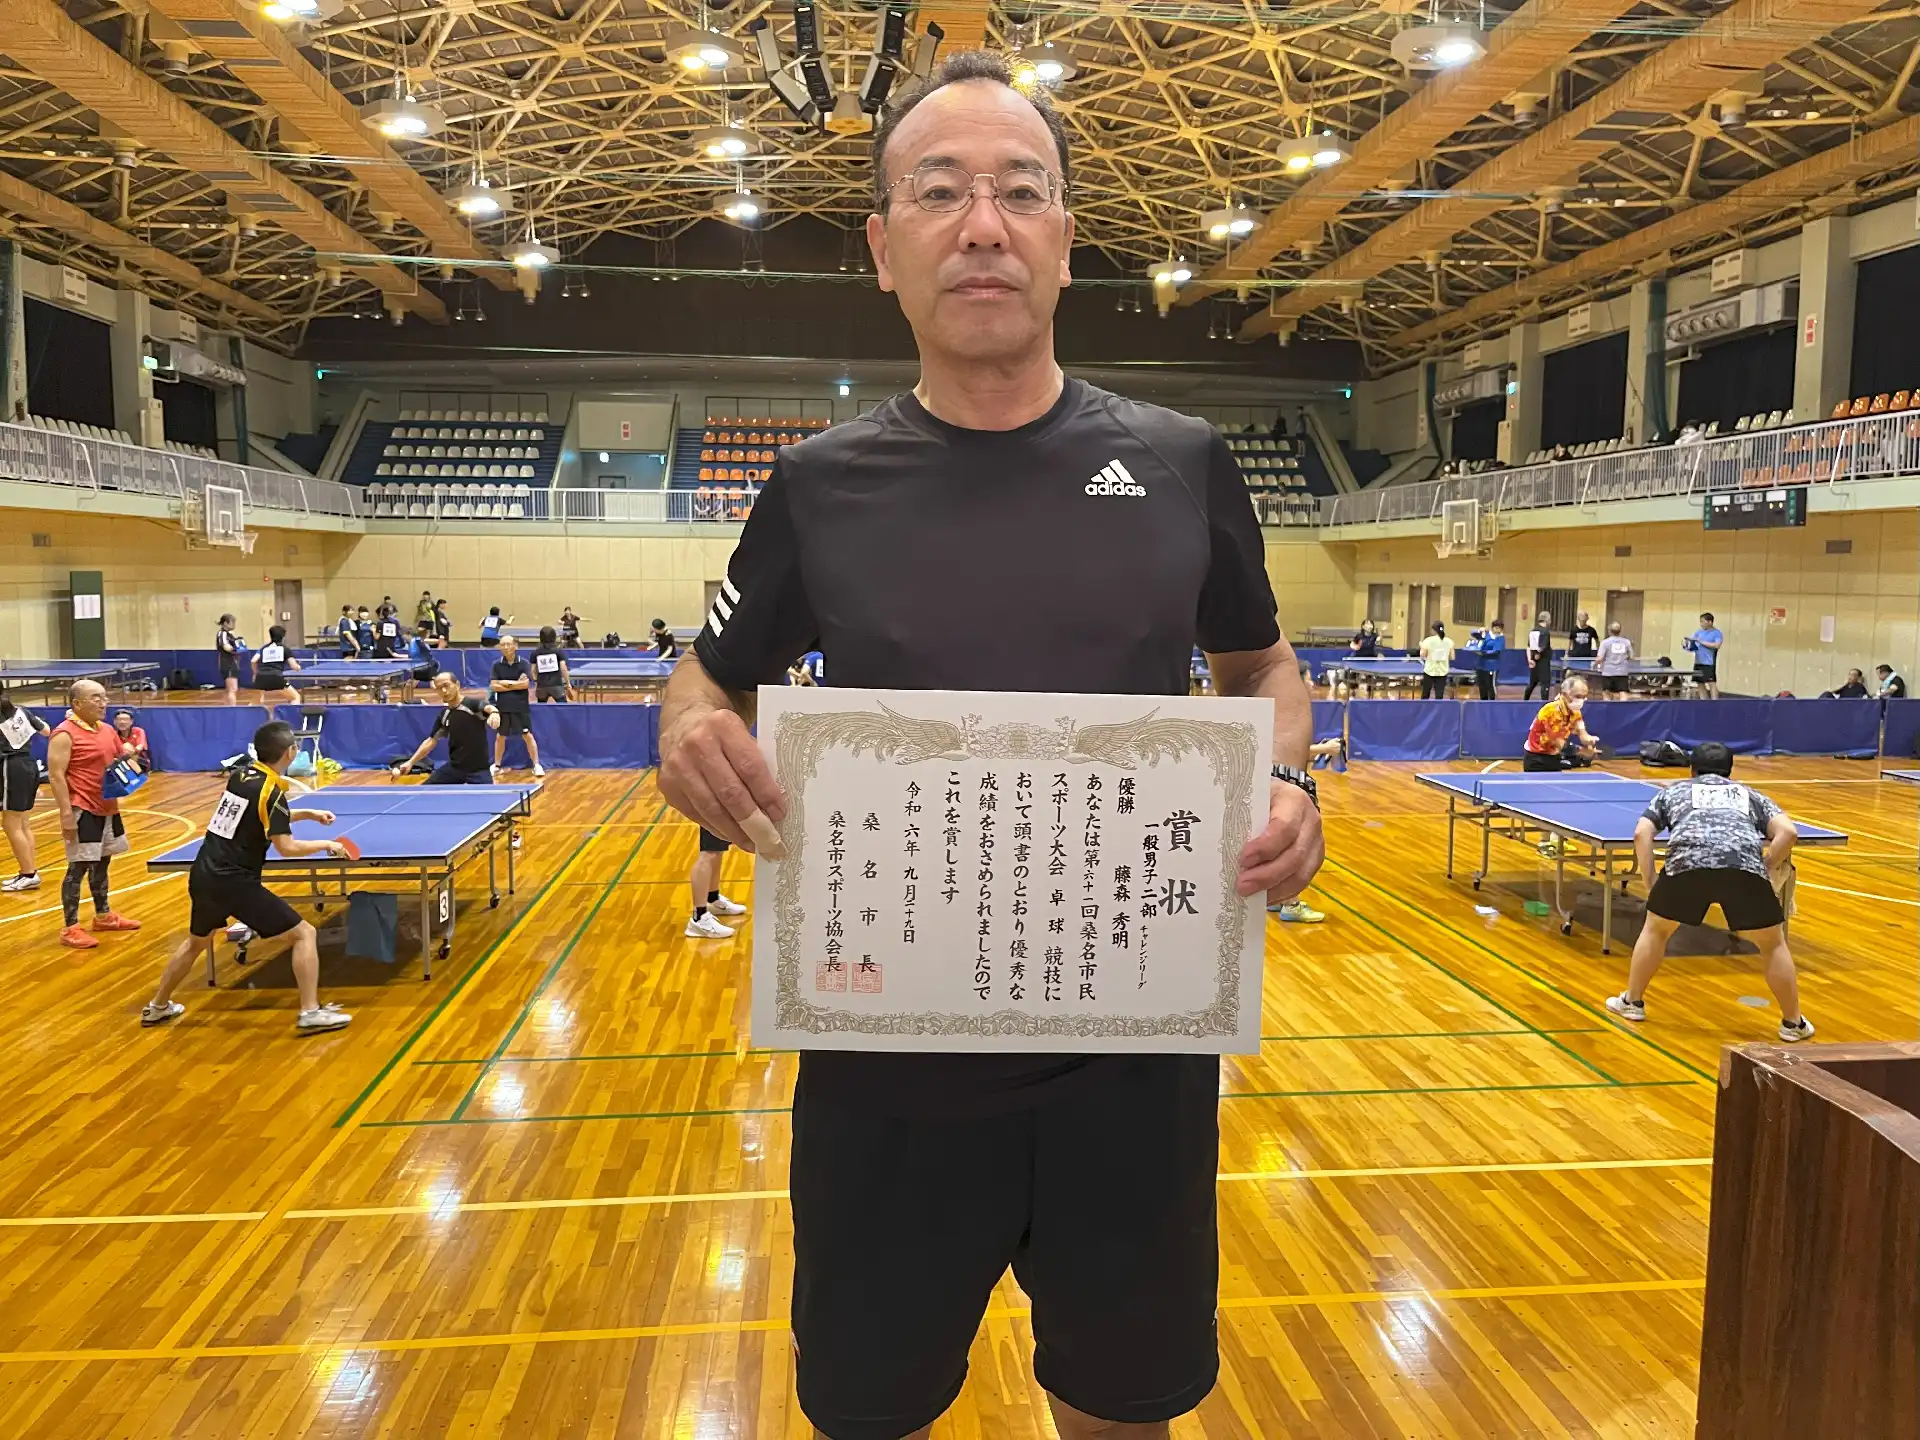 adidas
賞状
一般男子二部 チャレンジリーグ
優勝 藤森 秀明
あなたは第六十一回桑名市民
スポーツ大会 卓球競技に
おいて頭書のとおり優秀な
成績をおさめられましたので
これを賞します
令和六年九月二十九日
桑名市長
桑名市スポーツ協会長
3